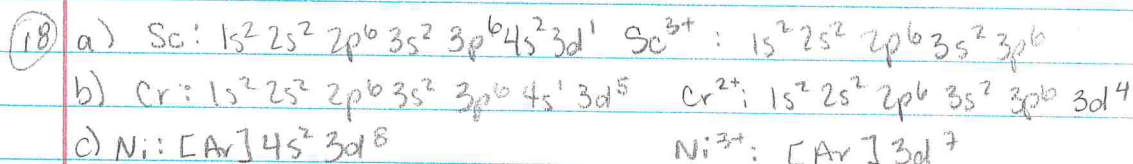 (18) a) Sc: 1s² 2s² 2p⁶ 3s² 3p⁶ 4s² 3d¹ Sc³⁺: 1s² 2s² 2p⁶ 3s² 3p⁶
b) Cr: 1s² 2s² 2p⁶ 3s² 3p⁶ 4s¹ 3d⁵ Cr²⁺: 1s² 2s² 2p⁶ 3s² 3p⁶ 3d⁴
c) Ni: [Ar] 4s² 3d⁸ Ni³⁺: [Ar] 3d⁷